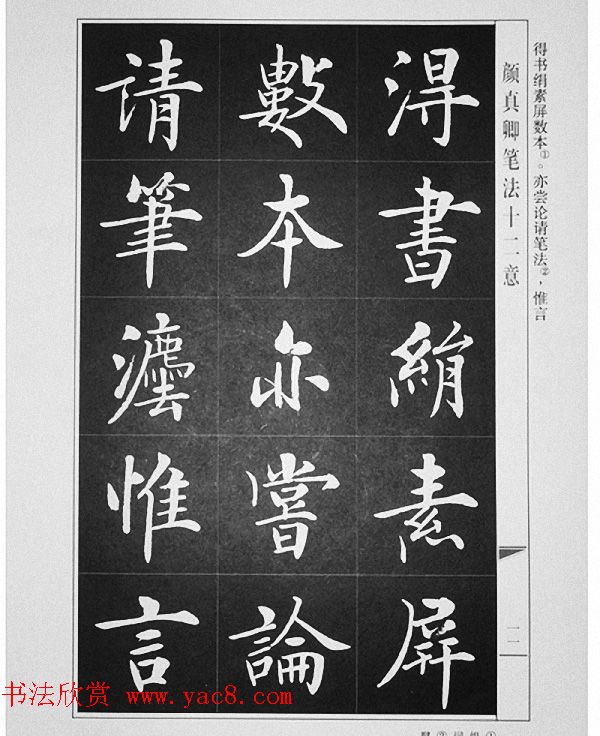 得书绢素屏数本①。亦尝论请笔法②，惟言
颜真卿笔法十二意
二
淂書絹素屏
數本亦嘗論
请筆灋惟言
书法欣赏 www.yac8.com